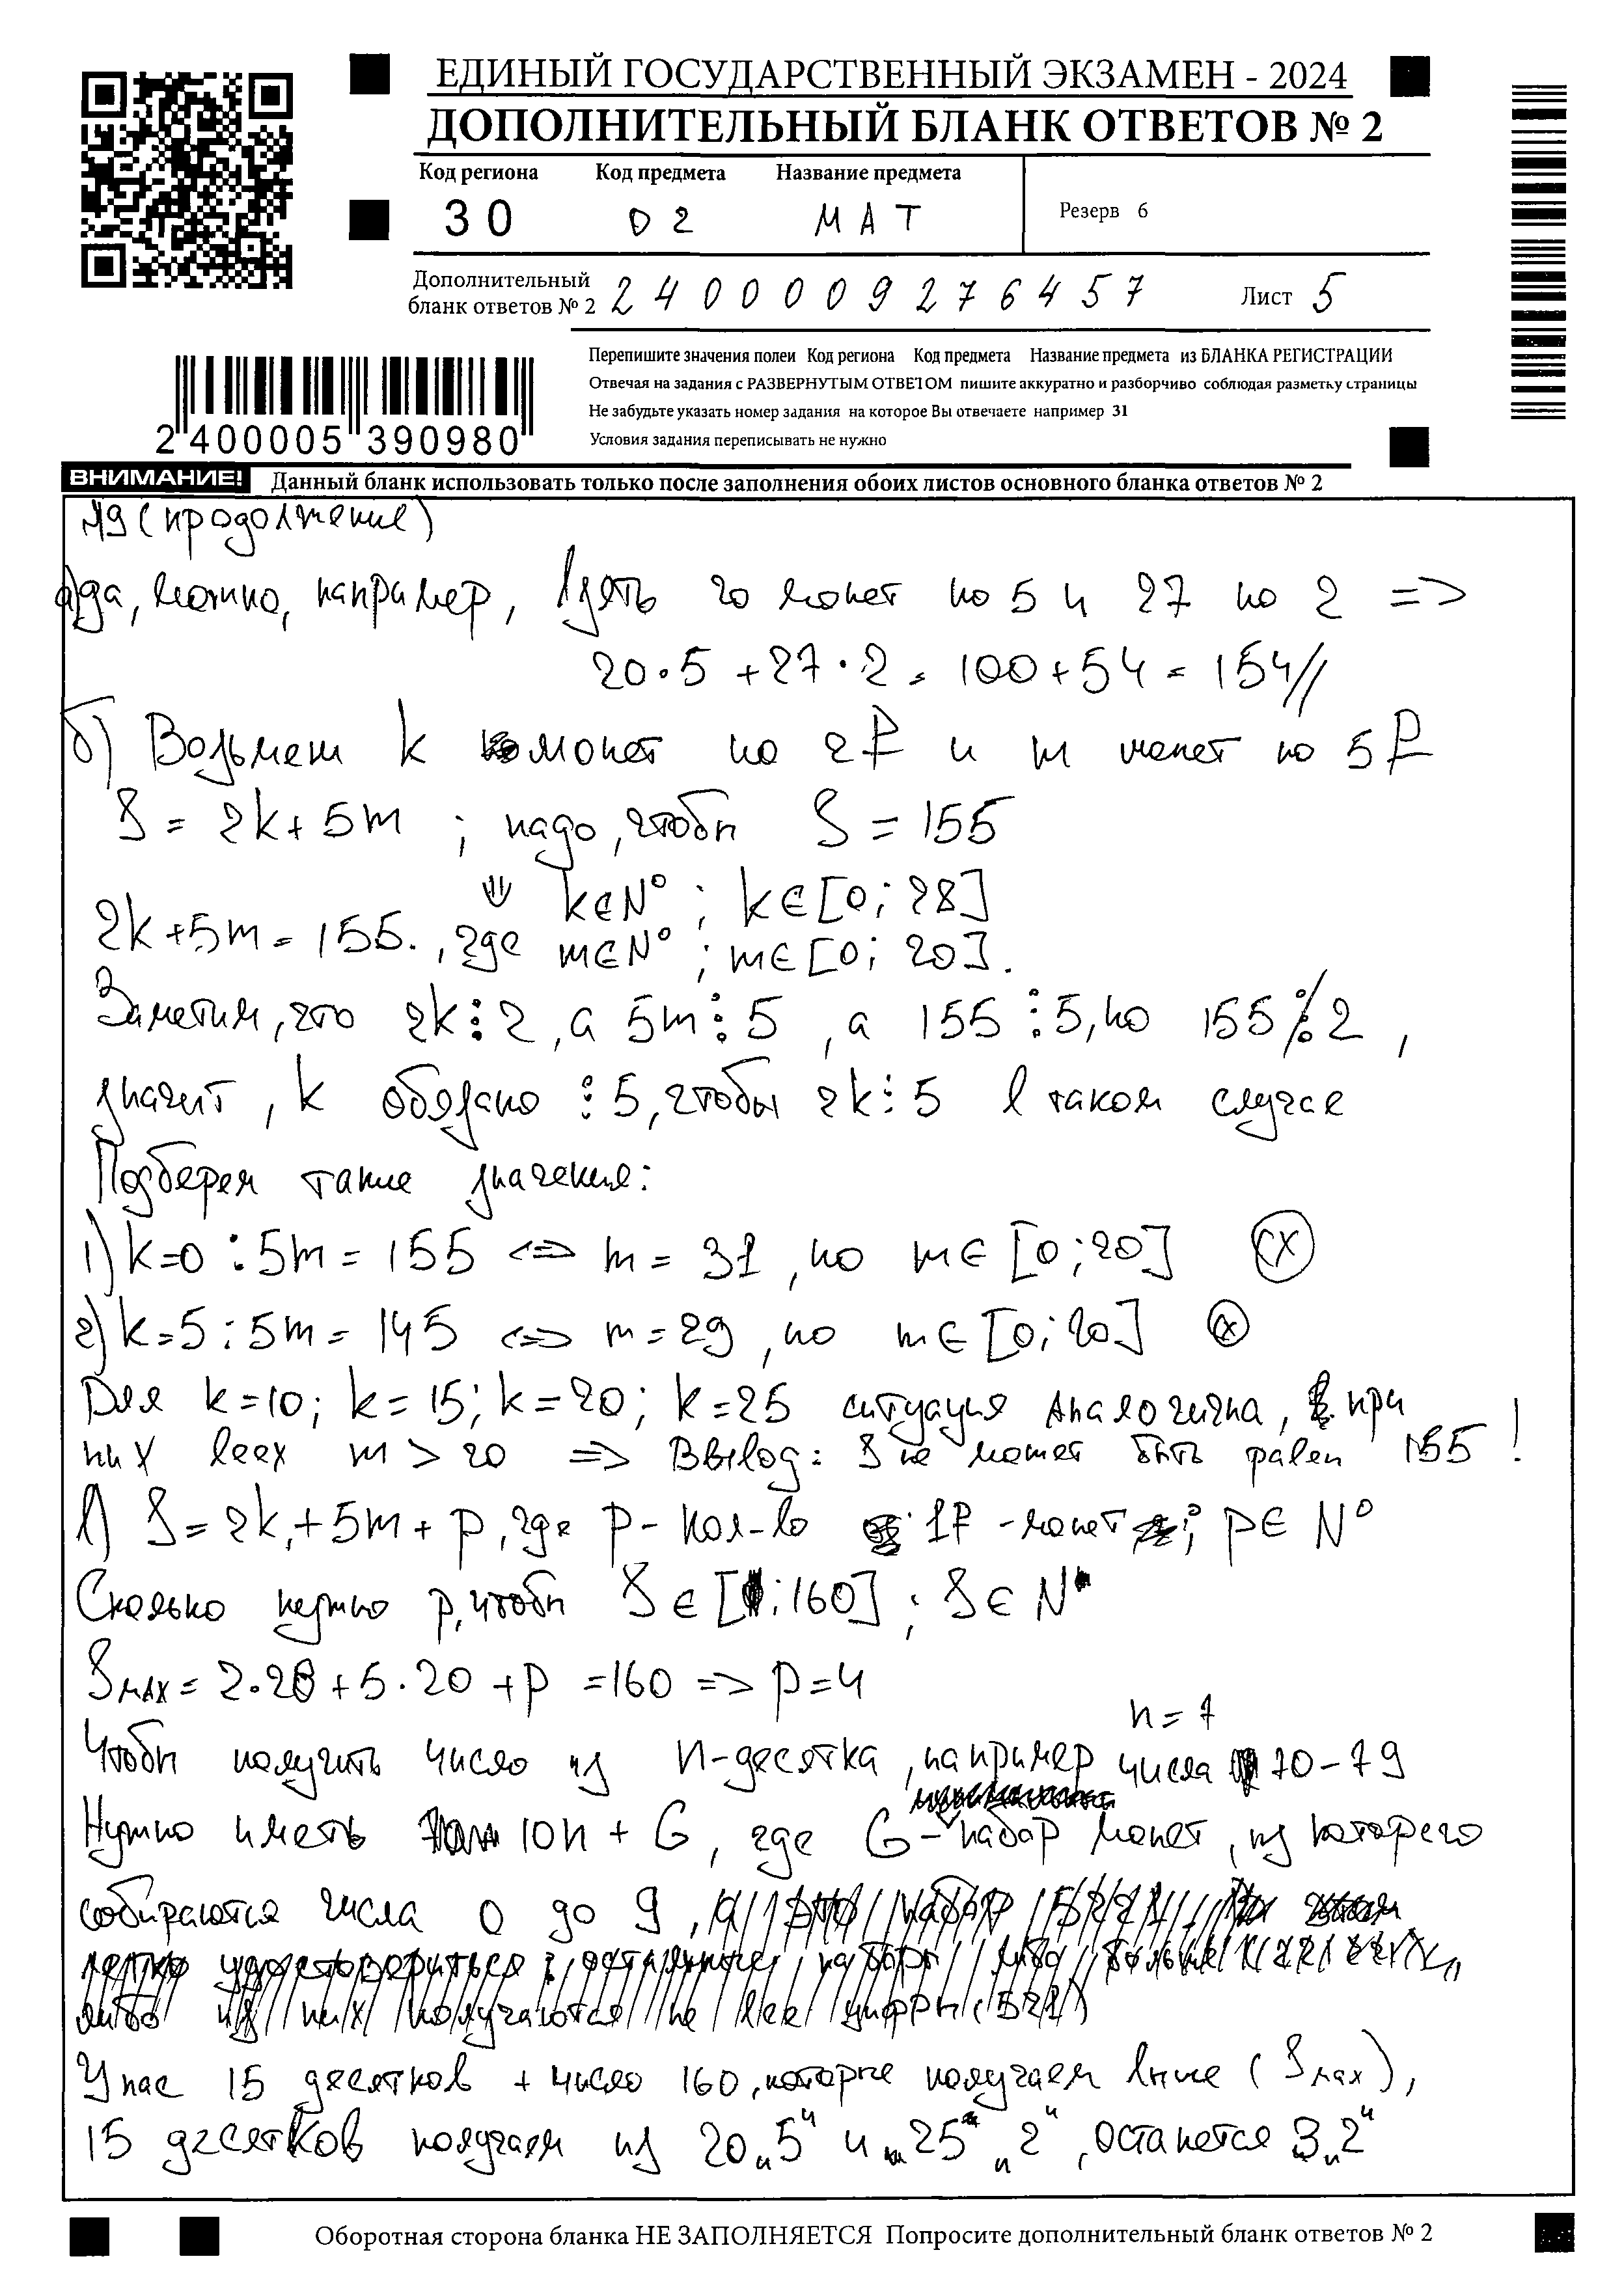 ЕДИНЫЙ ГОСУДАРСТВЕННЫЙ ЭКЗАМЕН - 2024
ДОПОЛНИТЕЛЬНЫЙ БЛАНК ОТВЕТОВ № 2
Код региона Код предмета Название предмета
30 02 МАТ Резерв 6
Дополнительный бланк ответов № 2 2400009276457 Лист 5
Перепишите значения полеи Код региона Код предмета Название предмета из БЛАНКА РЕГИСТРАЦИИ
Отвечая на задания с РАЗВЕРНУТЫМ ОТВЕТОМ пишите аккуратно и разборчиво соблюдая разметку страницы
Не забудьте указать номер задания на которое Вы отвечаете например 31
Условия задания переписывать не нужно
2 400005 390980
ВНИМАНИЕ! Данный бланк использовать только после заполнения обоих листов основного бланка ответов № 2
19 (продолжение)
а) да, можно, например, взять 20 монет по 5 и 27 по 2 =>
20·5 + 27·2 = 100 + 54 = 154//
б) Возьмем k монет по 2₽ и m монет по 5₽
S = 2k + 5m ; надо, чтобы S = 155
⇓ k∈N⁰ ; k∈[0; 28]
2k + 5m = 155., где m∈N⁰ ; m∈[0; 20].
Заметим, что 2k⋮2, а 5m⋮5, а 155⋮5, но 155⋮̸2,
значит, k обязано ⋮5, чтобы 2k⋮5 в таком случае
Подберем такие значения:
1) k=0 : 5m = 155 <=> m = 31, но m∈[0; 20] (X)
2) k=5 : 5m = 145 <=> m = 29, но m∈[0; 20] (x)
Для k=10; k=15; k=20; k=25 ситуация аналогична, при
них всех m > 20 => Вывод: S не может быть равен 155 !
в) S = 2k + 5m + p, где p - кол-во 1₽ - монет; p∈N⁰
Сколько нужно p, чтобы S∈[1; 160] ; S∈N
Sмах = 2·28 + 5·20 + p = 160 => p = 4
n = 7
Чтобы получить число из n-десятка, например числа 70-79
Нужно иметь 10n + G, где G - набор монет, из которого
собираются числа 0 до 9,
У нас 15 десятков + число 160, которые получаем выше (Sмах),
15 десятков получаем из 20 „5“ и 25 „2“, останется 3 „2“
Оборотная сторона бланка НЕ ЗАПОЛНЯЕТСЯ Попросите дополнительный бланк ответов № 2